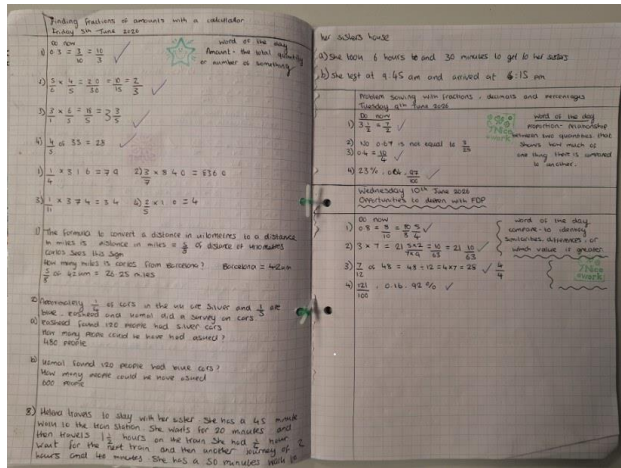 Finding fractions of amounts with a calculator
Friday 5th June 2020
Do now
word of the day
Amount - the total quantity
or number of something
1) 0.3 = 3/10
2) 5/6 × 4/5 = 20/30 = 10/15 = 2/3
3) 3/1 × 6/5 = 18/5 = 3 3/5
4) 4/5 of 35 = 28
1) 1/4 × 316 = 79
3) 1/11 × 374 = 34
4) 2/5 × 10 = 4
1) The formula to convert a distance in kilometres to a distance
in miles is distance in miles = 5/8 of distance in kilometres
Carlos sees this sign
How many miles is Carlos from Barcelona? Barcelona = 42km
5/8 of 42km = 26.25 miles
2) Approximately 1/4 of cars in the UK are silver and 1/5 are
blue. Rashead and Usmal did a survey on cars
a) Rashead found 120 people had silver cars
How many people could he have had asked?
480 people
b) Usmal found 120 people had blue cars?
How many people could he have asked
600 people
8) Helena travels to stay with her sister. She has a 45 minute
walk to the train station. She waits for 20 minutes and
then travels 1 1/2 hours on the train She had 1/2 hour
wait for the next train and then another journey of 2
hours and 40 minutes. She has a 50 minutes walk to
her sisters house
a) she took 6 hours and 30 minutes to get to her sisters
b) she left at 9.45 am and arrived at 6:15 pm
Problem solving with fractions, decimals and percentages
Tuesday 9th June 2020
Do now
word of the day
proportion - relationship
between two quantities that
shows how much of
one thing there is compared
to another.
1) 3 1/2 = 7/2
2) No 0.67 is not equal to
4) 23%, 0.
Wednesday 10th June 2020
Opportunities to deepen with FDP
Do now
word of the day
compare - to identify
similarities, differences, or
which value is greater.
1) 0.8 = 8/10 = 4/5
3) 7/12 of 48 = 48 ÷ 12 = 4×7 = 28
4) 121/100, 0.16, 92%